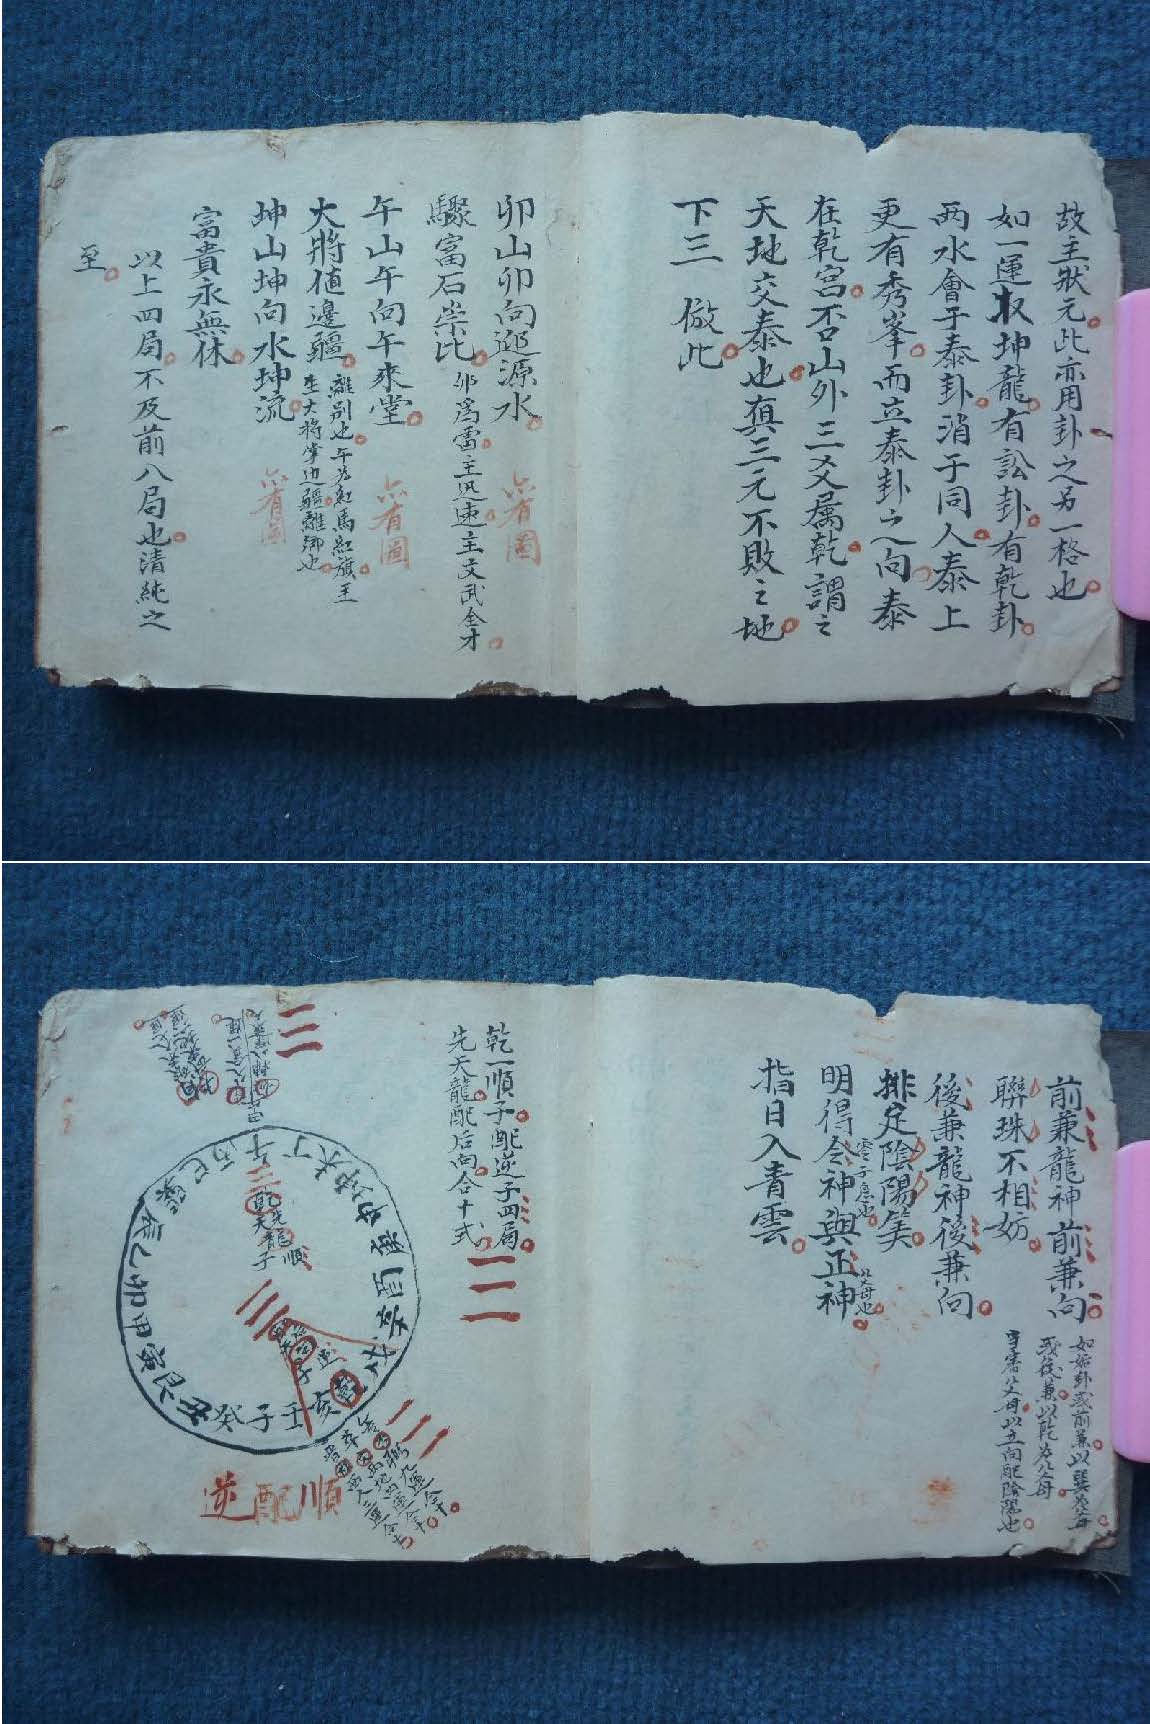 故主狀元此亦用卦之另一格也
如一運取坤龍有訟卦有乾卦
两水會于泰卦消于同人泰上
更有秀峯而立泰卦之向泰
在乾宮否山外三爻属乾謂之
天地交泰也真三元不敗之地
下三 倣此
卯山卯向迎源水
驟富石崇比 卯爲雷主迅速主文武全才
午山午向午來堂
大將值邊疆
離別也午為紅馬紅旗主
生大將掌边疆離鄉也
坤山坤向水坤流
富貴永無休
以上四局不及前八局也清純之
至
有圖
有圖
有圖
前兼龍神前兼向
聯珠不相妨
後兼龍神後兼向
排定陰陽筭
明得零神與正神
指日入青雲
如姤卦或前兼以巽為父母
或後兼以乾为父母
宜審父母以立向配陰陽也
乾一順子配逆子四局
先天龍配后向合十式
午丁未坤申庚酉辛戌乾亥壬子癸丑艮寅甲卯乙辰巽巳丙
順配逆